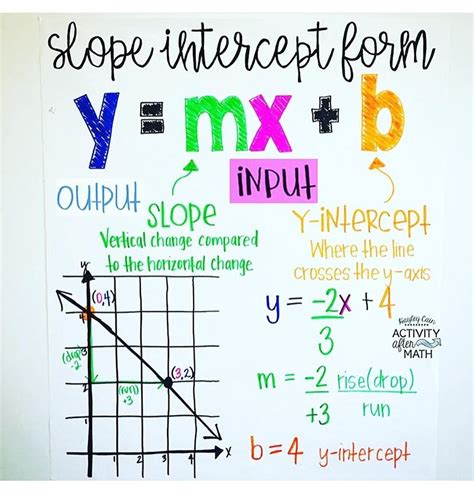 slope intercept form
y = mx + b
OUtPUt
INPUt
SLOPE
Vertical change compared
to the horizontal change
Y-INtERCEPt
Where the line
crosses the y-axis
y = -2x + 4
3
Kayley Cain
ACTIVITY
after
MATH
m = -2 rise(drop)
+3 run
b = 4 y-intercept
y
(0,4)
4
3
(drop)
-2
2
(3,2)
(run)
+3
1
1 2 3 4
x